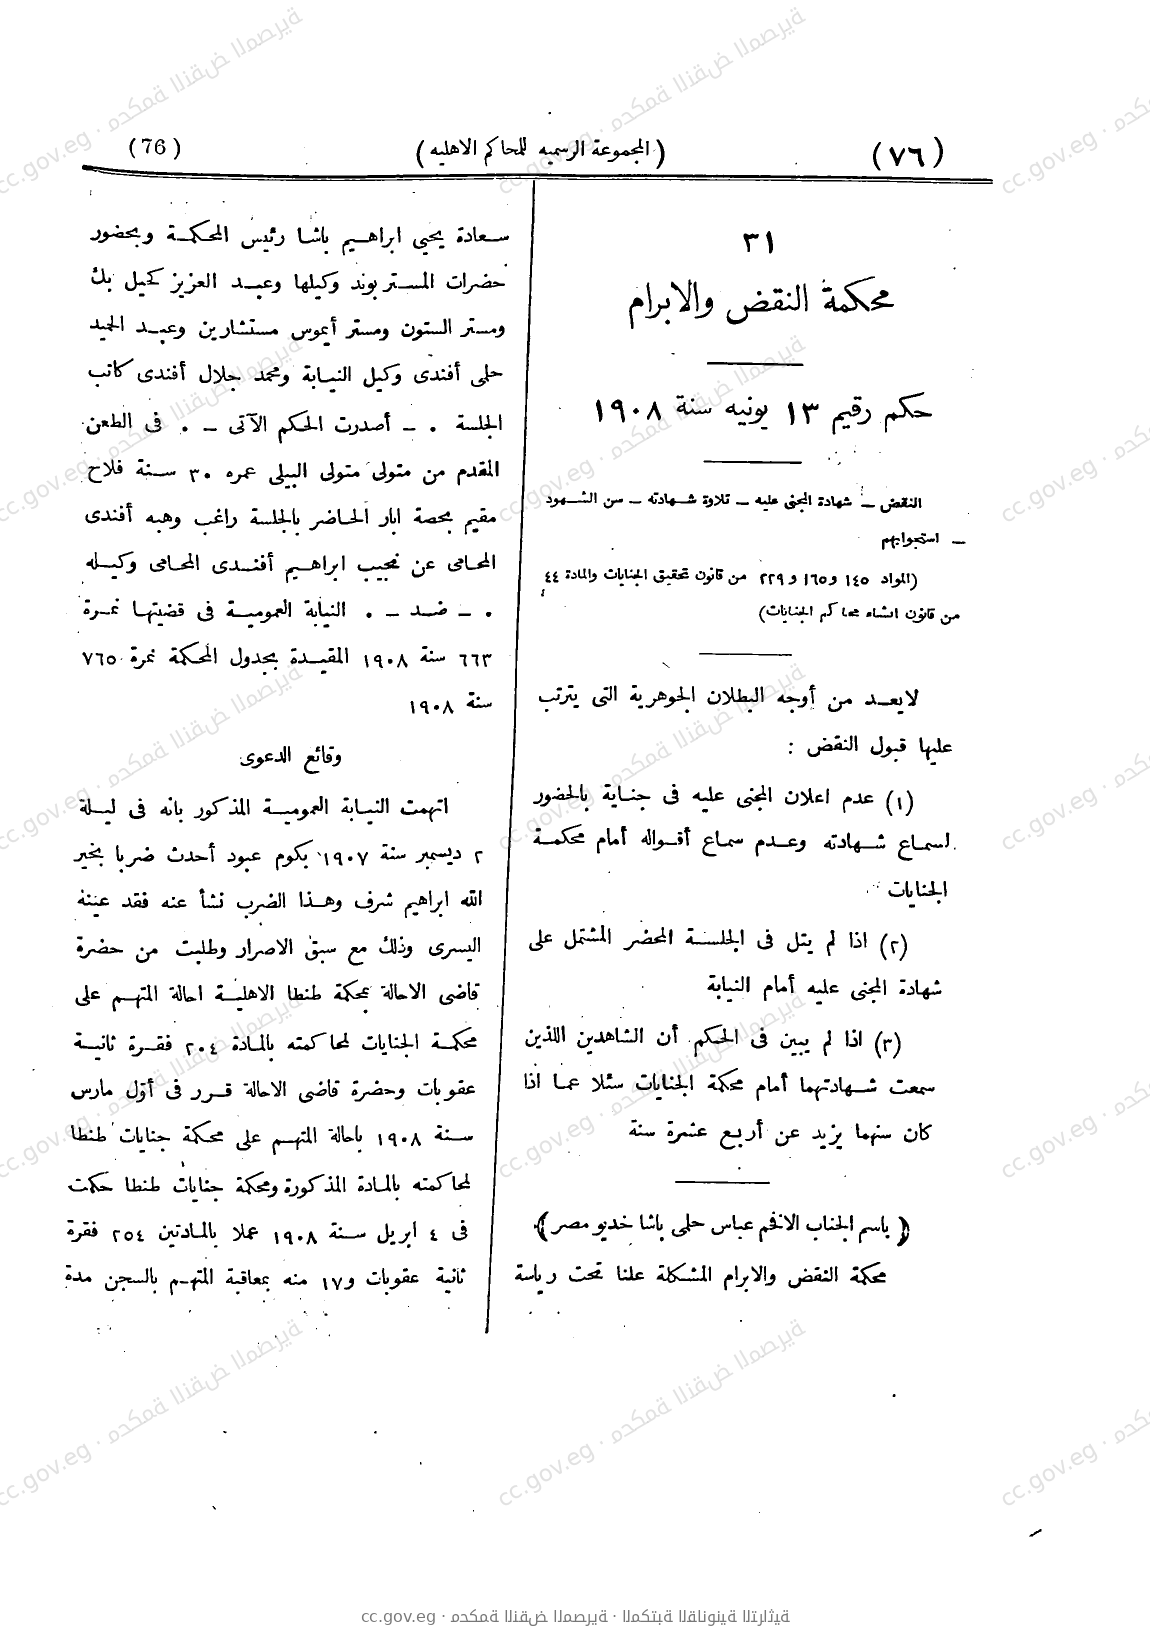 (٧٦)
(المجموعة الرسمية للمحاكم الاهلية)
(76)
٣١
محكمة النقض والابرام
حكم رقيم ١٣ يونيه سنة ١٩٠٨
النقض – شهادة المجنى عليه – تلاوة شهادته – سن الشهود
– استجوابهم
(المواد ١٤٥ و١٦٥ و ٢٢٩ من قانون تحقيق الجنايات والمادة ٤٤
من قانون انشاء محاكم الجنايات)
لا يعد من أوجه البطلان الجوهرية التى يترتب
عليها قبول النقض :
(١) عدم اعلان المجنى عليه فى جناية بالحضور
لسماع شهادته وعدم سماع أقواله أمام محكمة
الجنايات
(٢) اذا لم يتل فى الجلسة المحضر المشتمل على
شهادة المجنى عليه أمام النيابة
(٣) اذا لم يبين فى الحكم أن الشاهدين اللذين
سمعت شهادتهما أمام محكمة الجنايات سئلا عما اذا
كان سنهما يزيد عن أربع عشرة سنة
(باسم الجناب الافخم عباس حلمى باشا خديو مصر)
محكمة النقض والابرام المشكلة علنا تحت رياسة
سعادة يحيى ابراهيم باشا رئيس المحكمة وبحضور
حضرات المستر بوند وكيلها وعبد العزيز كحيل بك
ومستر الستون ومستر أيموس مستشارين وعبد الحميد
حلمى أفندى وكيل النيابة ومحمد جلال أفندى كاتب
الجلسة . – أصدرت الحكم الآتى – . فى الطعن
المقدم من متولى متولى البيلى عمره ٣٠ سنة فلاح
مقيم بحصة ابار الحاضر بالجلسة راغب وهبه أفندى
المحامى عن نجيب ابراهيم أفندى المحامى وكيله
. – ضد – . النيابة العمومية فى قضيتها نمرة
٦٦٣ سنة ١٩٠٨ المقيدة بجدول المحكمة نمرة ٧٦٥
سنة ١٩٠٨
وقائع الدعوى
اتهمت النيابة العمومية المذكور بانه فى ليلة
٢ ديسمبر سنة ١٩٠٧ بكوم عبود أحدث ضربا بخير
الله ابراهيم شرف وهذا الضرب نشأ عنه فقد عينه
اليسرى وذلك مع سبق الاصرار وطلبت من حضرة
قاضى الاحالة بمحكمة طنطا الاهلية احالة المتهم على
محكمة الجنايات لمحاكمته بالمادة ٢٠٤ فقرة ثانية
عقوبات وحضرة قاضى الاحالة قرر فى أول مارس
سنة ١٩٠٨ باحالة المتهم على محكمة جنايات طنطا
لمحاكمته بالمادة المذكورة ومحكمة جنايات طنطا حكمت
فى ٤ ابريل سنة ١٩٠٨ عملا بالمادتين ٢٥٤ فقرة
ثانية عقوبات و١٧ منه بمعاقبة المتهم بالسجن مدة
cc.gov.eg · محكمة النقض المصرية · المكتبة القانونية التراثية